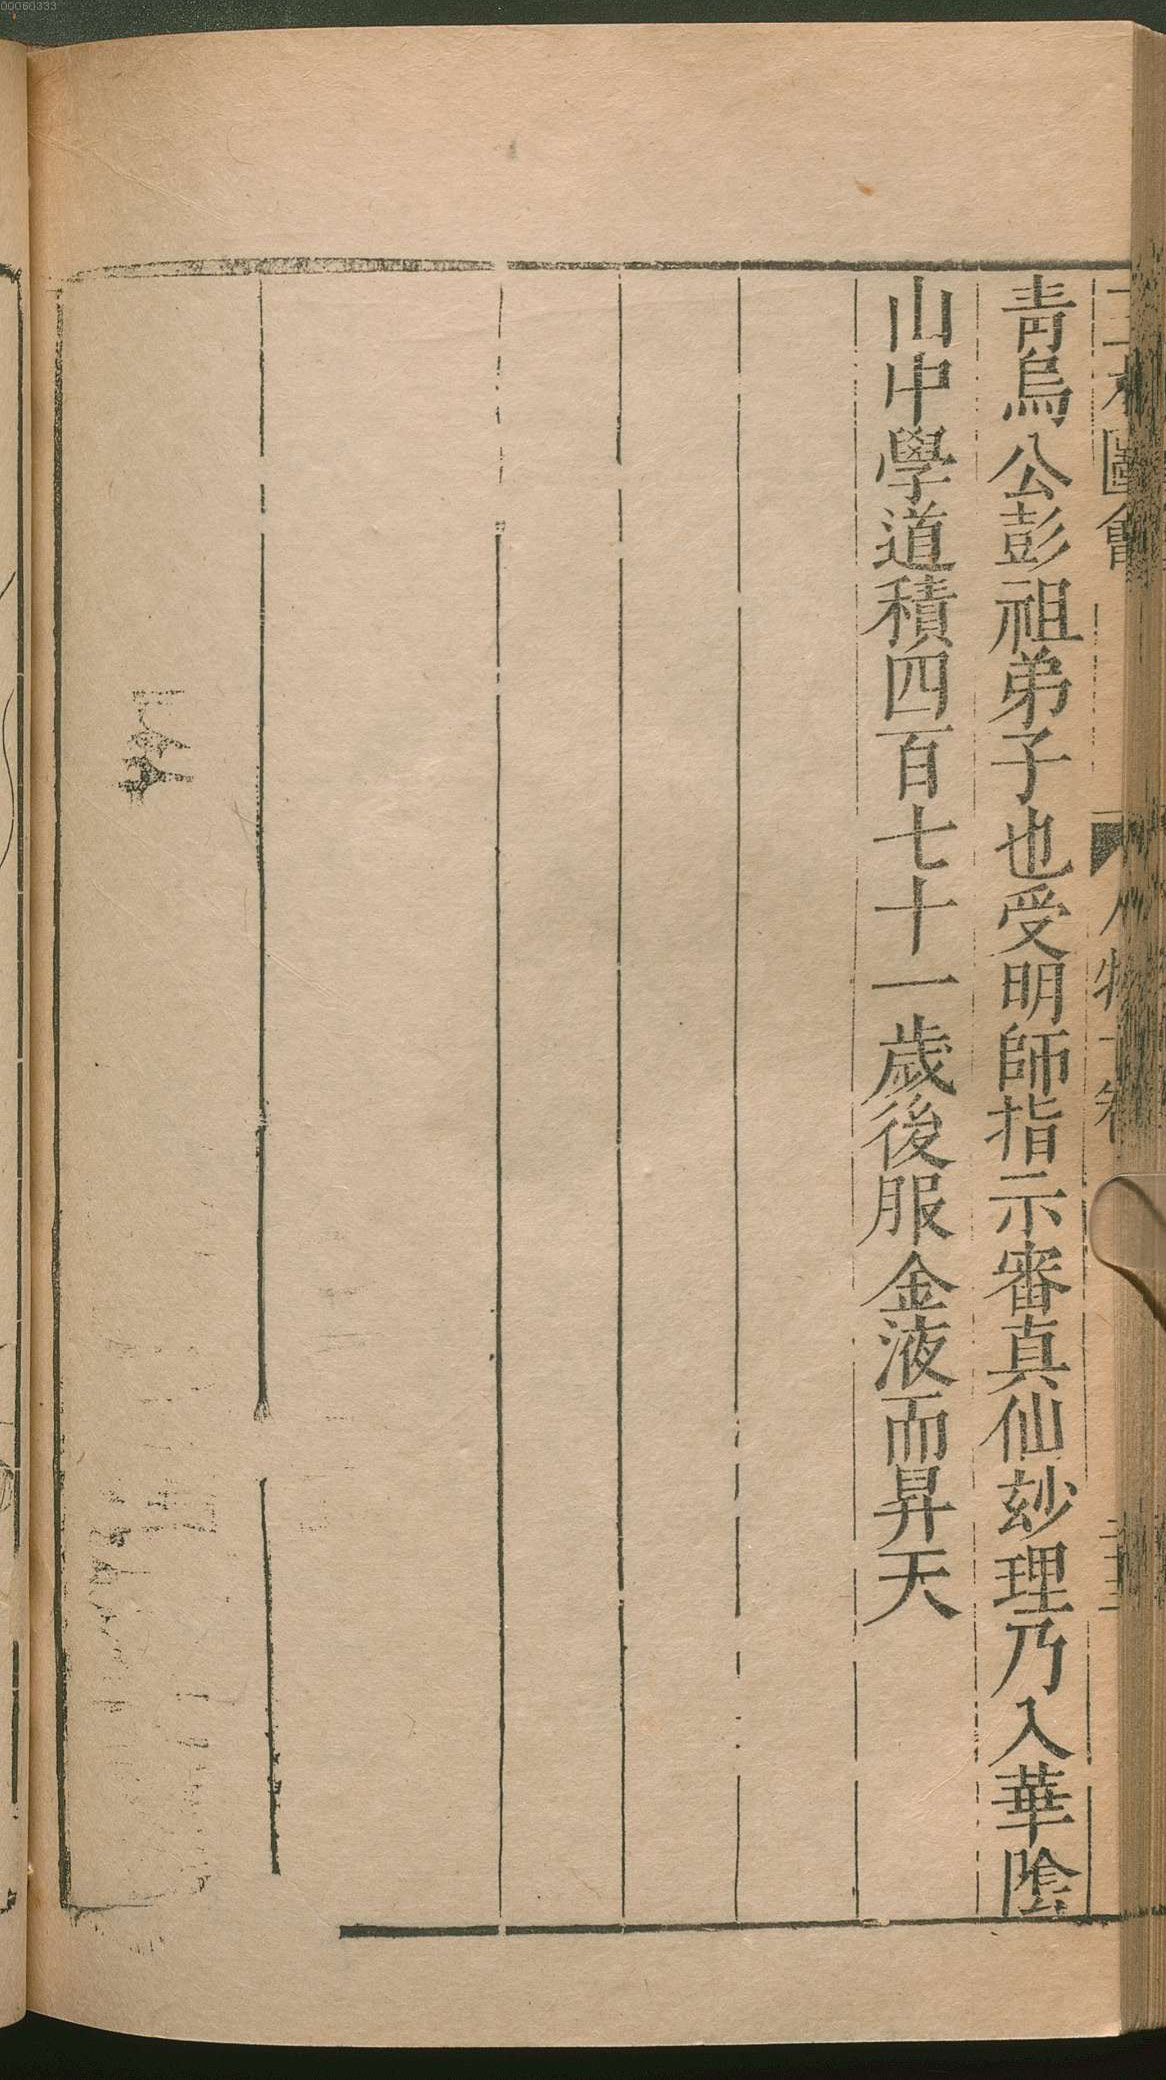 00060333
三才圖會 人物十卷
靑烏公彭祖弟子也受明師指示審真仙玅理乃入華陰
山中學道積四百七十一歲後服金液而昇天